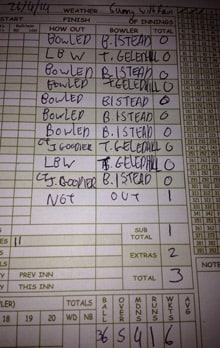 26/4/14 WEATHER Sunny
START FINISH OF INNINGS
HOW OUT BOWLER TOTAL
BOWLED B.ISTEAD 0
LBW T.GELEDHILL 0
BOWLED B.ISTEAD 0
BOWLED T.GELEDHILL 0
BOWLED B ISTEAD 0
BOWLED B.ISTEAD 0
BOWLED B.ISTEAD 0
CT J.GOODIER T.GELEDHILL 0
LBW T.GELEDHILL 0
CT J.GOODIER B.ISTEAD 0
NOT OUT 1
SUB TOTAL 1
ES 11
EXTRAS 2
TOTAL 3
Y PREV INN
Y THIS INN
LER) TOTALS BALL OVERS MDNS RUNS WKTS AVG
18 19 20 WD NB
36 5 4 1 6
NOTE